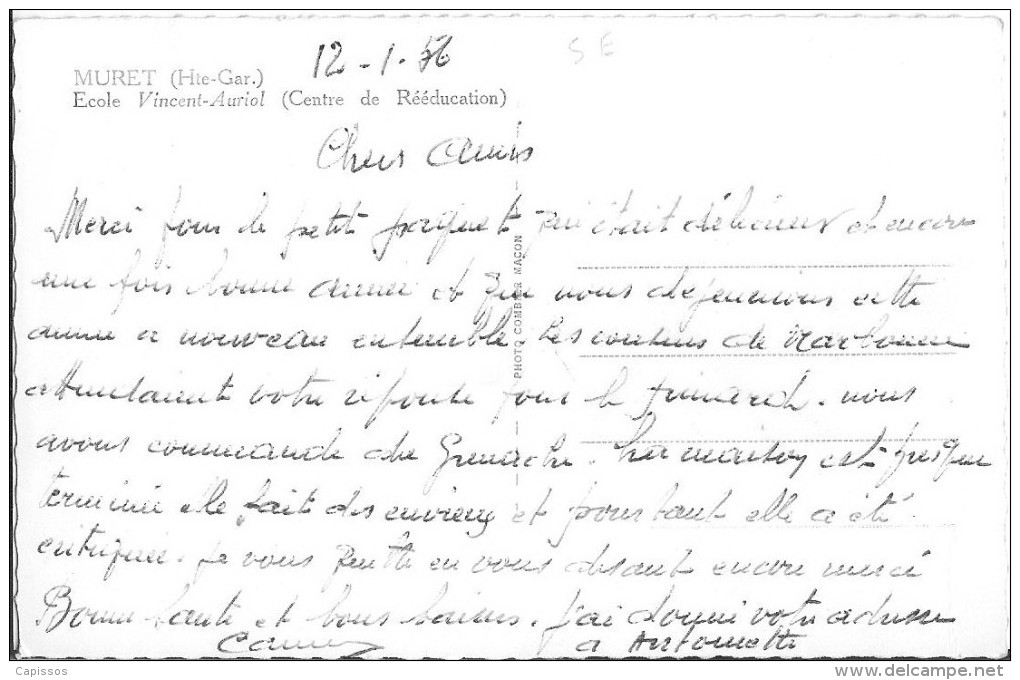 12-1.56
S E
MURET (Hte-Gar.)
Ecole Vincent-Auriol (Centre de Rééducation)
Chers Amis
Merci pour le petit paquet qui était délicieux et encore
une fois bonne année et que nous dejeunions cette
annee a nouveau ensemble les cousins de Narbonne
attendaient votre réponse pour le pinard. nous
avons commande du Grenache. La maison est presque
terminée elle fait des envieux et pourtant elle a été
critiquée. je vous quitte en vous disant encore merci
Bonne Sante et bons baisers. J'ai donné votre adresse
a Antoinette
PHOTO COMBIER MACON
Capissos
delcampe.net